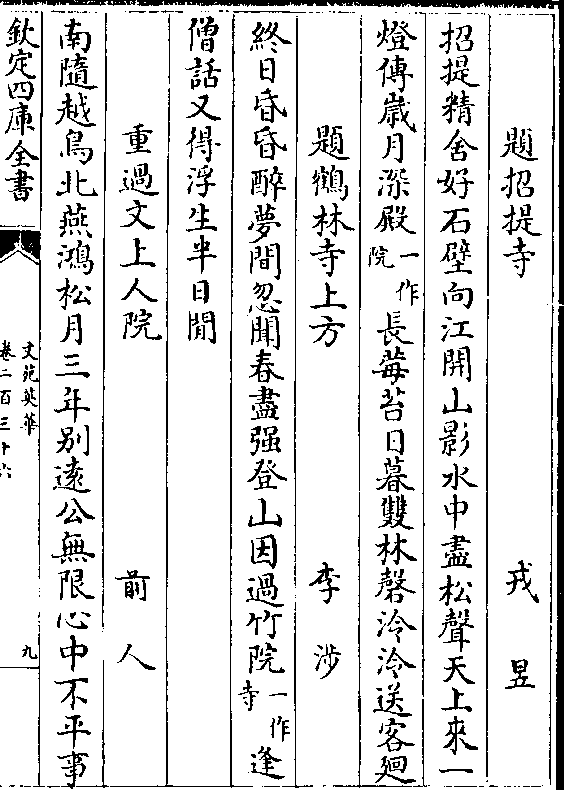 題招提寺　戎昱
招提精舍好石壁向江開山影水中盡松聲天上來一
燈傳嵗月深殿一作院長莓苔日暮雙林磬泠泠送客廻
題鶴林寺上方　李涉
終日昏昏醉夢間忽聞春盡强登山因過竹院一作寺逢
僧話又得浮生半日閒
重過文上人院　前人
南隨越鳥北燕鴻松月三年别遠公無限心中不平事
欽定四庫全書
文苑英華
卷二百三十六
九